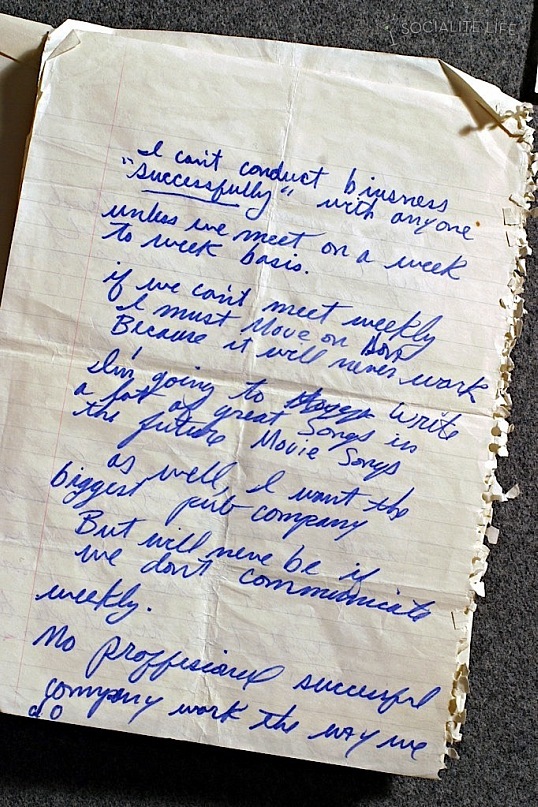 SOCIALITE LIFE
I can't conduct biusness
"successfully" with anyone
unless we meet on a week
to week basis.
if we can't meet weekly
I must Move on
Because it will never work
I'm going to write
a lot of great Songs in
the future Movie Songs
as well, I want the
biggest pub company
But will never be if
we don't communicate
weekly.
No proffisional succesful
company work the way we
do